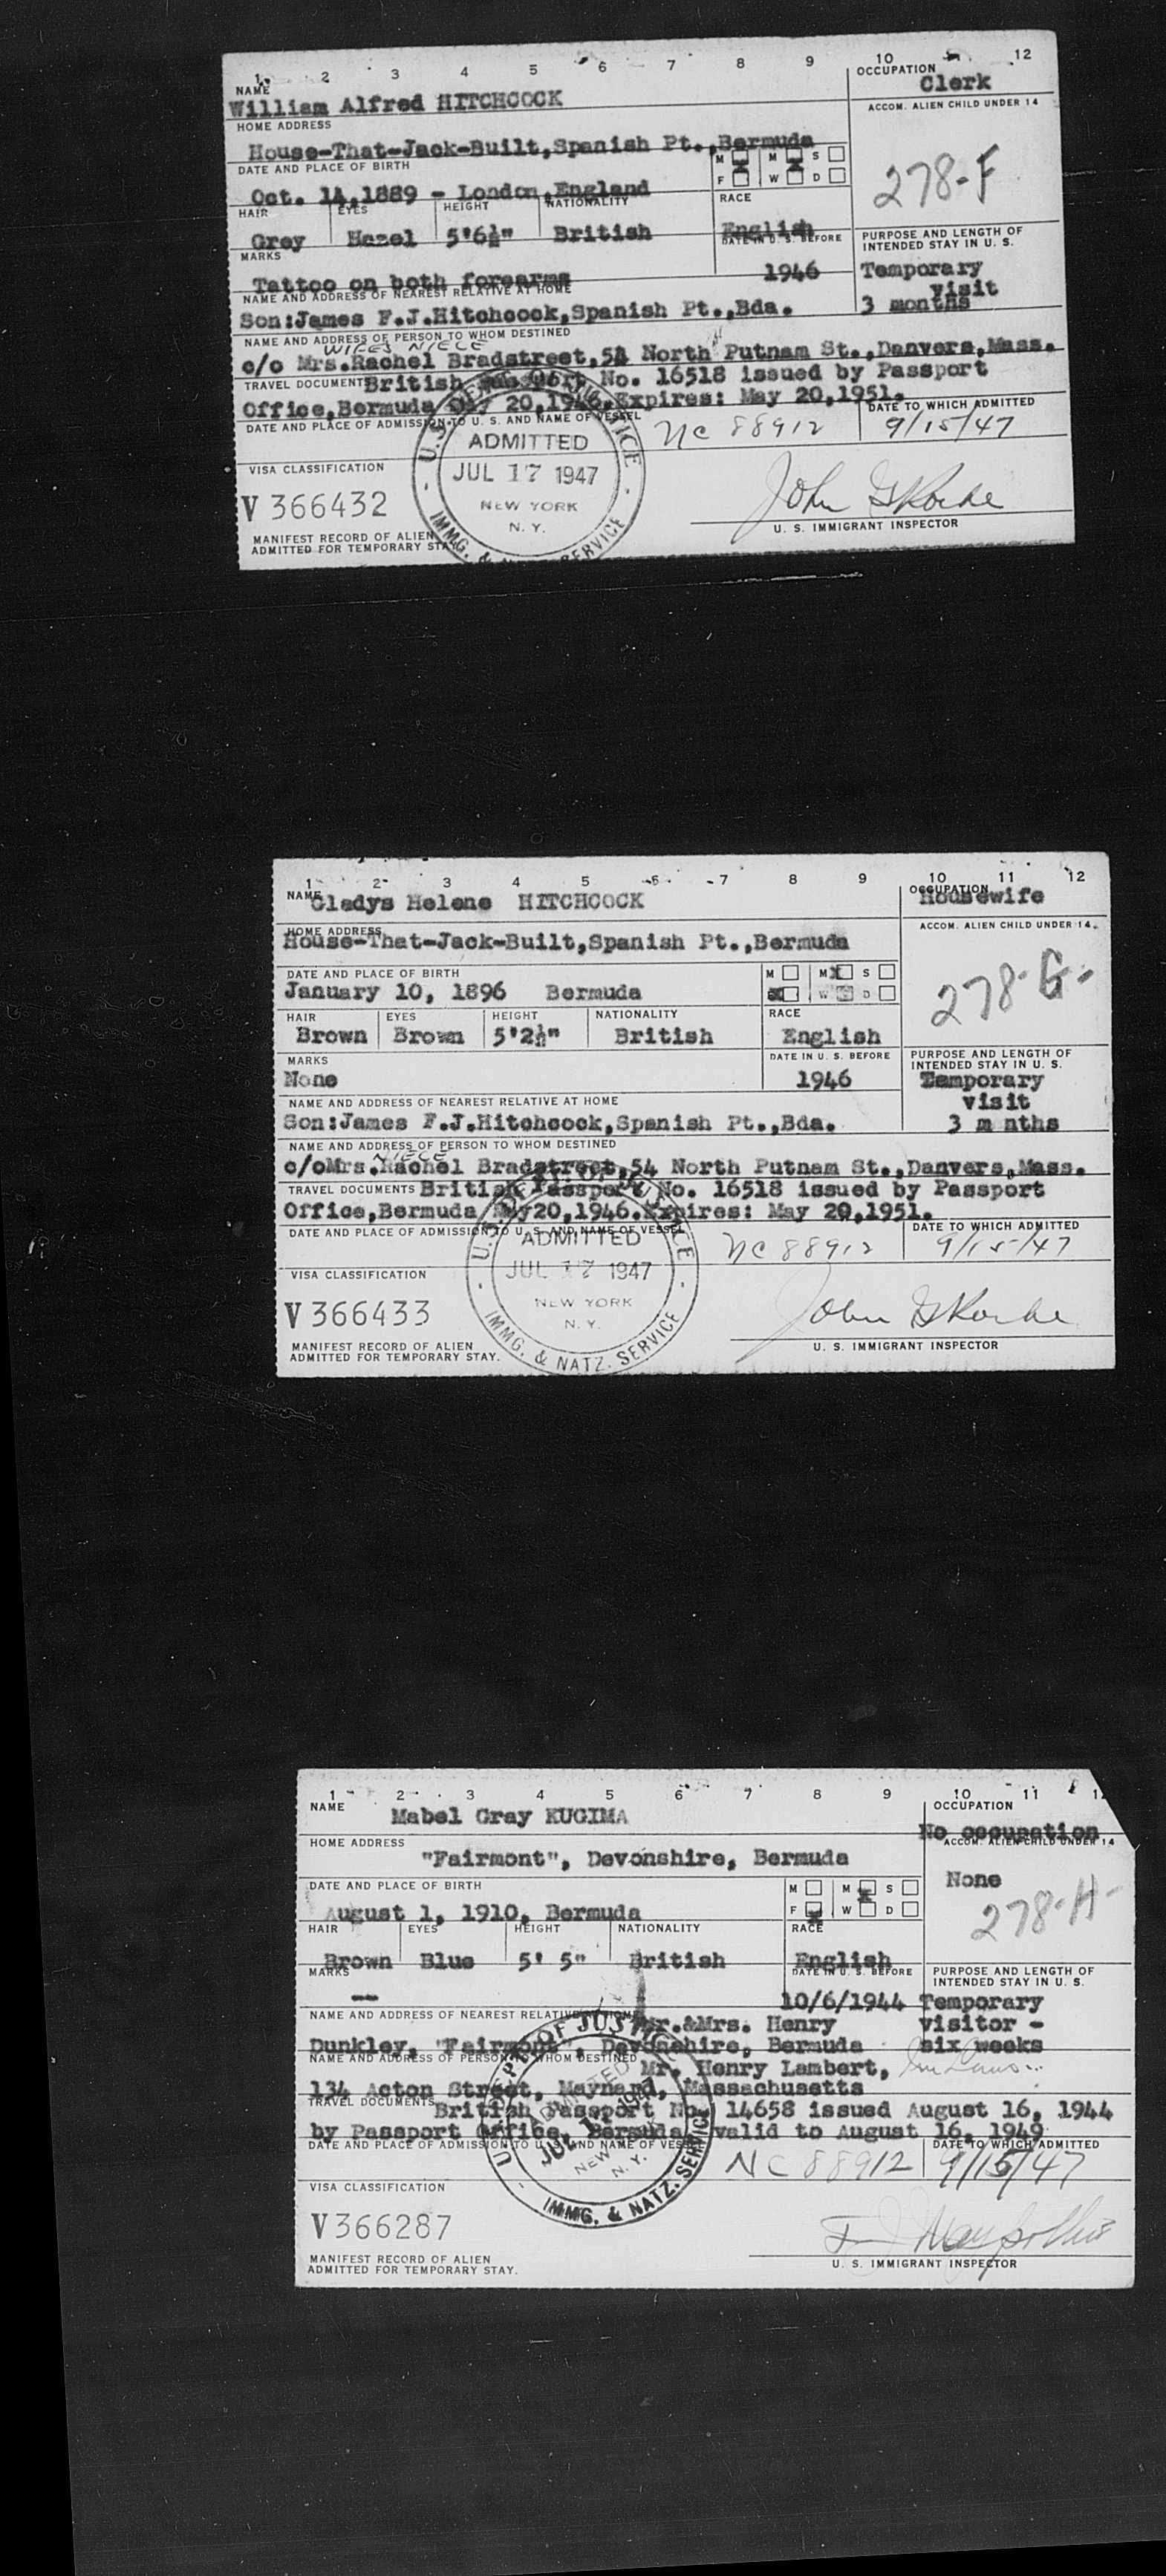 1 2 3 4 5 6 7 8 9 10 12
NAME OCCUPATION
William Alfred HITCHCOCK Clerk
HOME ADDRESS ACCOM. ALIEN CHILD UNDER 14
House-That-Jack-Built,Spanish Pt.,Bermuda
DATE AND PLACE OF BIRTH M M S
F W D
278-F
Oct. 14,1889 - London,England
HAIR EYES HEIGHT NATIONALITY RACE
Grey Hazel 5'6½" British English
MARKS DATE IN U. S. BEFORE PURPOSE AND LENGTH OF
INTENDED STAY IN U. S.
Tattoo on both forearms 1946 Temporary
visit
NAME AND ADDRESS OF NEAREST RELATIVE AT HOME
Son:James F.J.Hitchcock,Spanish Pt.,Bda. 3 months
NAME AND ADDRESS OF PERSON TO WHOM DESTINED
WIFES NIECE
c/o Mrs.Rachel Bradstreet,54 North Putnam St.,Danvers,Mass.
TRAVEL DOCUMENT British Passport No. 16518 issued by Passport
Office,Bermuda May 20,1946.Expires: May 20,1951.
DATE AND PLACE OF ADMISSION TO U. S. AND NAME OF VESSEL DATE TO WHICH ADMITTED
NC 88912 9/15/47
ADMITTED
JUL 17 1947
NEW YORK
N. Y.
IMMG. & NATZ. SERVICE
VISA CLASSIFICATION
V 366432
U. S. IMMIGRANT INSPECTOR
MANIFEST RECORD OF ALIEN
ADMITTED FOR TEMPORARY STAY.
1 2 3 4 5 6 7 8 9 10 11 12
NAME Gladys Helene HITCHCOCK OCCUPATION Housewife
HOME ADDRESS ACCOM. ALIEN CHILD UNDER 14.
House-That-Jack-Built,Spanish Pt.,Bermuda
278-G-
DATE AND PLACE OF BIRTH M M S
January 10, 1896 Bermuda W D
HAIR EYES HEIGHT NATIONALITY RACE
Brown Brown 5'2½" British English
MARKS DATE IN U. S. BEFORE PURPOSE AND LENGTH OF
INTENDED STAY IN U. S.
None 1946 Temporary
NAME AND ADDRESS OF NEAREST RELATIVE AT HOME visit
Son:James F.J.Hitchcock,Spanish Pt.,Bda. 3 m nths
NAME AND ADDRESS OF PERSON TO WHOM DESTINED
NIECE
c/oMrs.Rachel Bradstreet,54 North Putnam St.,Danvers,Mass.
TRAVEL DOCUMENTS British Passport No. 16518 issued by Passport
Office,Bermuda May20,1946.Expires: May 20,1951.
DATE AND PLACE OF ADMISSION TO U. S. AND NAME OF VESSEL DATE TO WHICH ADMITTED
NC 88912 9/15/47
ADMITTED
JUL 17 1947
NEW YORK
N. Y.
IMMG. & NATZ. SERVICE
VISA CLASSIFICATION
V 366433
U. S. IMMIGRANT INSPECTOR
MANIFEST RECORD OF ALIEN
ADMITTED FOR TEMPORARY STAY.
1 2 3 4 5 6 7 8 9 10 11
NAME OCCUPATION
Mabel Gray KUGIMA No occupation
HOME ADDRESS ACCOM. ALIEN CHILD UNDER 14
"Fairmont", Devonshire, Bermuda
None
DATE AND PLACE OF BIRTH M M S
F W D
278-H-
August 1, 1910, Bermuda
HAIR EYES HEIGHT NATIONALITY RACE
Brown Blue 5' 5" British English
MARKS DATE IN U. S. BEFORE PURPOSE AND LENGTH OF
INTENDED STAY IN U. S.
-- 10/6/1944 Temporary
NAME AND ADDRESS OF NEAREST RELATIVE AT HOME Mr.&Mrs. Henry visitor -
Dunkley, "Fairmont", Devonshire, Bermuda six weeks
NAME AND ADDRESS OF PERSON TO WHOM DESTINED Mr. Henry Lambert,
134 Acton Street, Maynard, Massachusetts
TRAVEL DOCUMENTS British Passport No. 14658 issued August 16, 1944
by Passport Office, Bermuda, valid to August 16, 1949
DATE AND PLACE OF ADMISSION TO U. S. AND NAME OF VESSEL DATE TO WHICH ADMITTED
NC 88912 9/15/47
U. S. DEPT. OF JUSTICE
ADMITTED
NEW
N. Y.
IMMG. & NATZ. SERVICE
VISA CLASSIFICATION
V 366287
U. S. IMMIGRANT INSPECTOR
MANIFEST RECORD OF ALIEN
ADMITTED FOR TEMPORARY STAY.